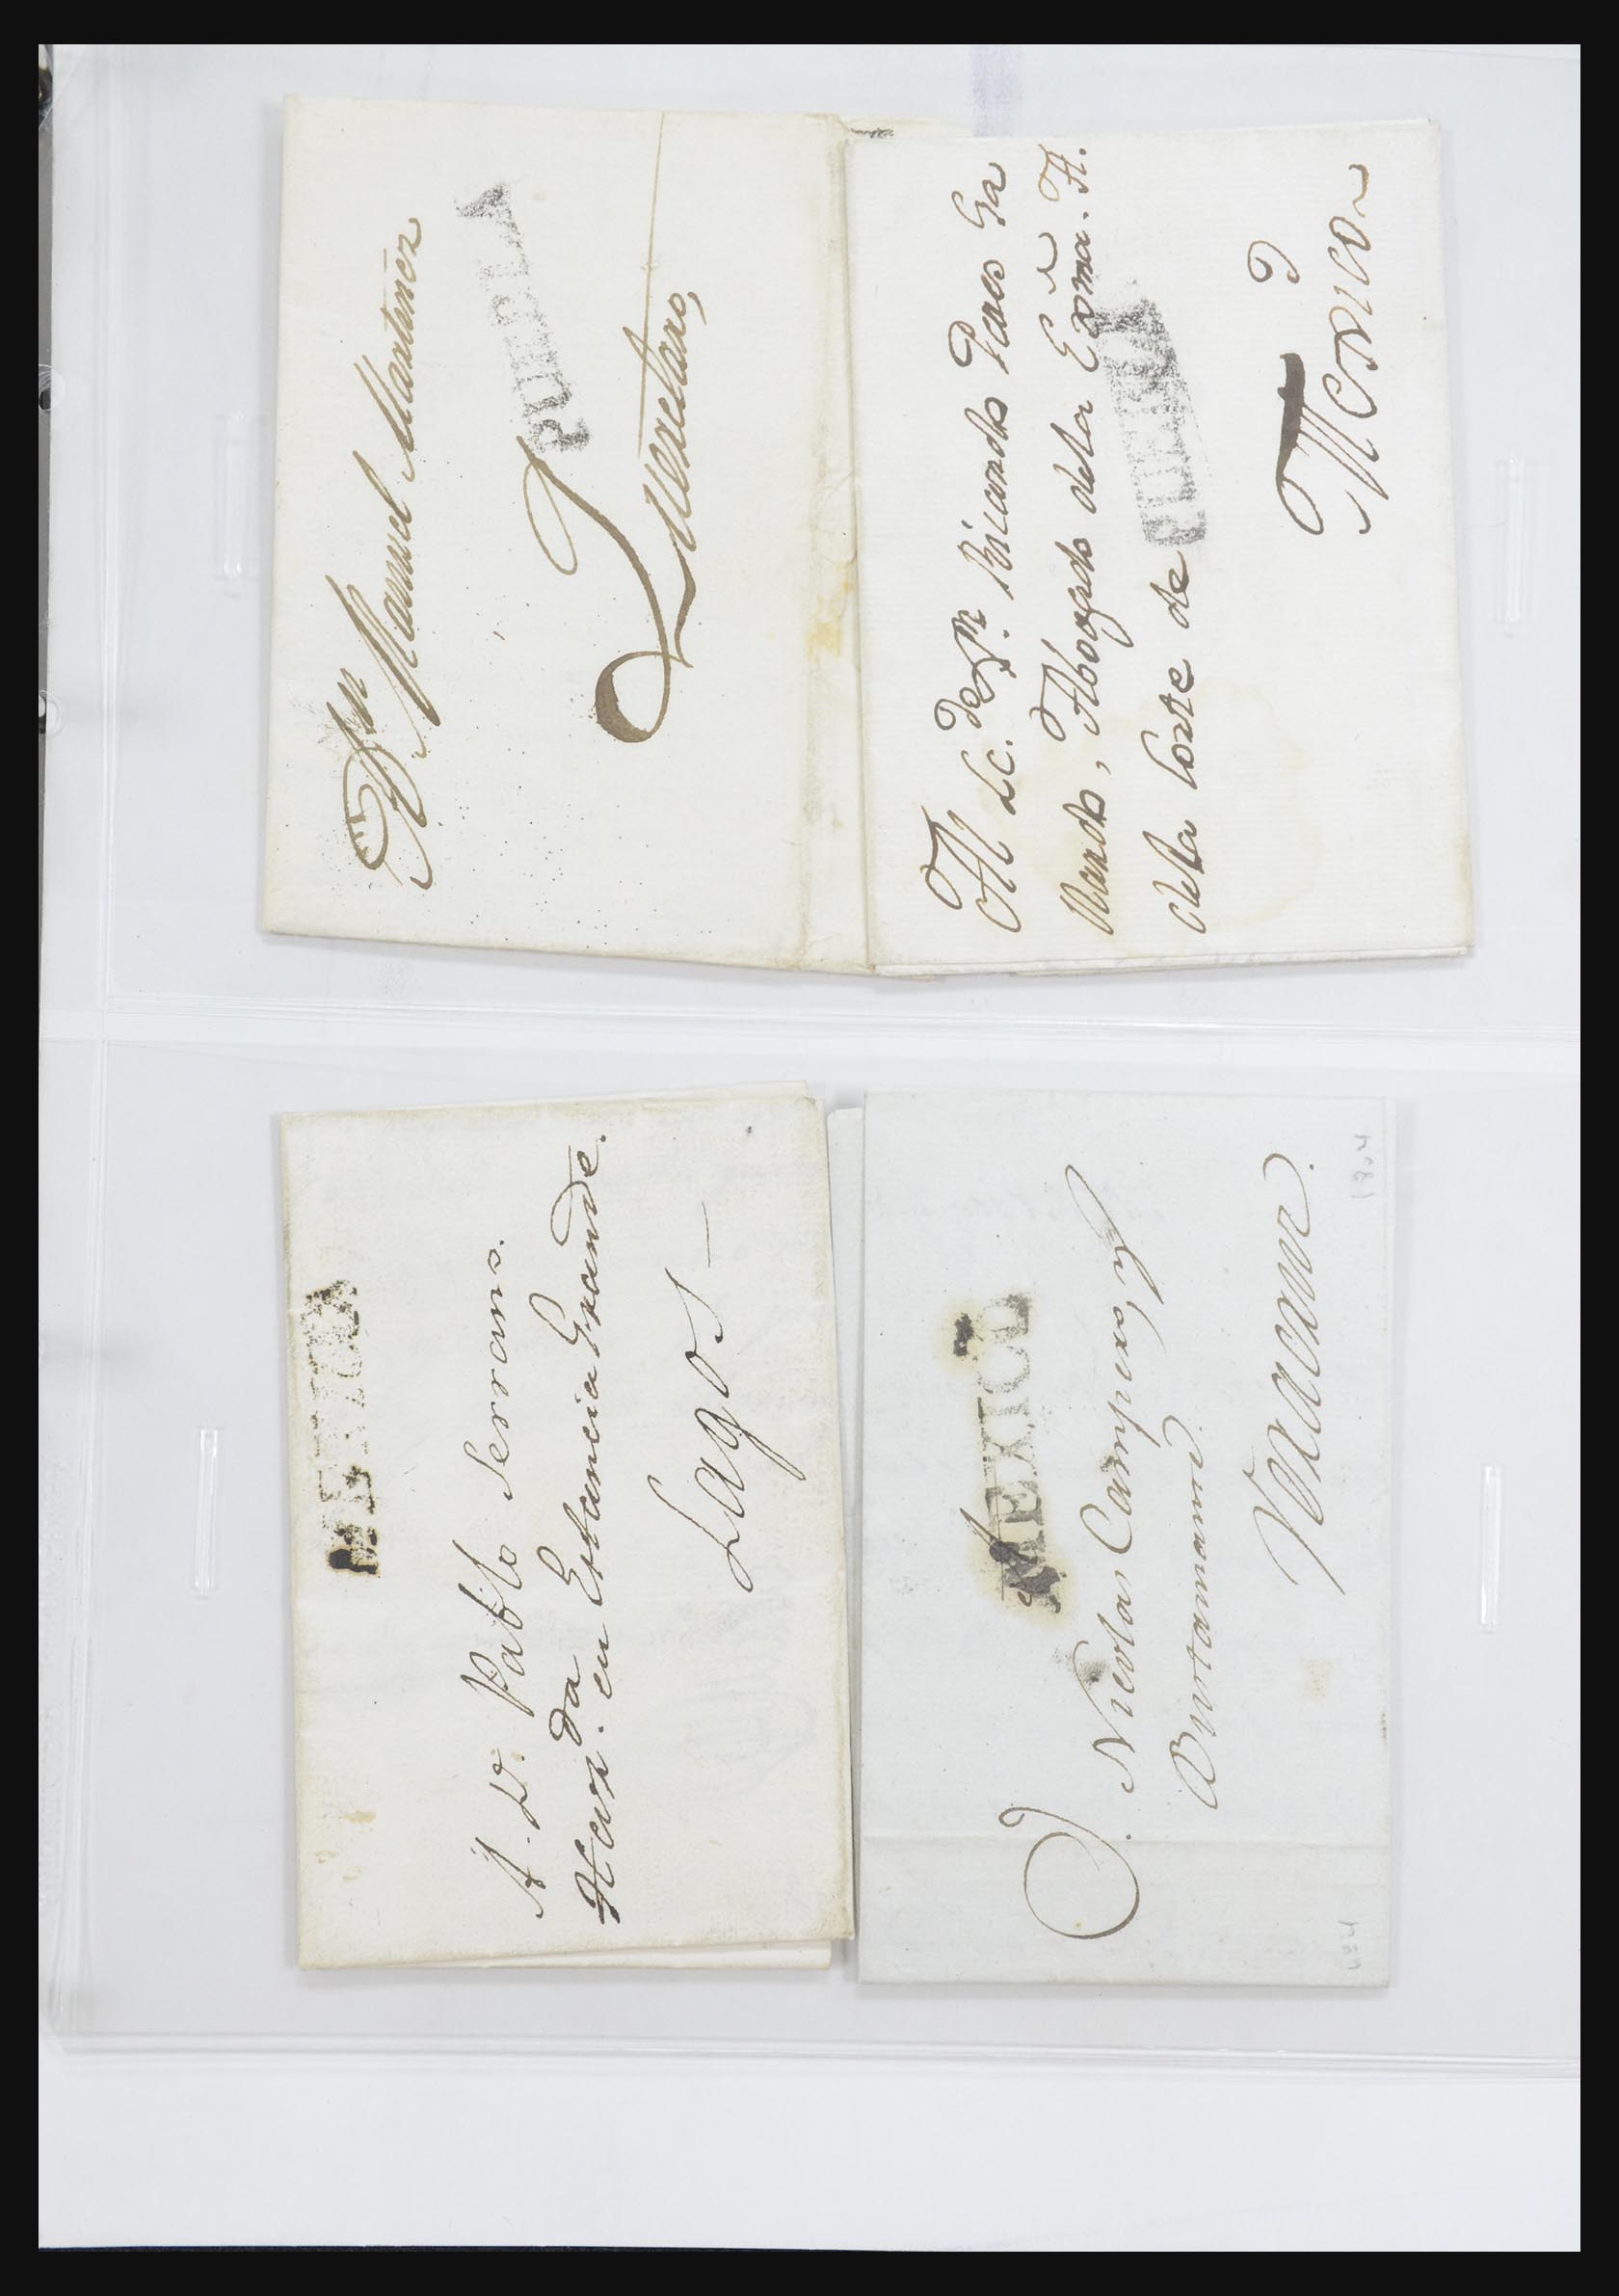 Dn Manuel Martinez
PUEBLA
Queretaro,
Al Lic.do Dn. Ricardo
nando, Abogado dela Exma. A.
dela Corte de
PUEBLA
Mexico
MEXICO
A D. Pablo Serrano.
Haz.da en Estancia Grande.
Lagos
MEXICO
D. Nicolas Campero, y
Bustamante
1804
1804